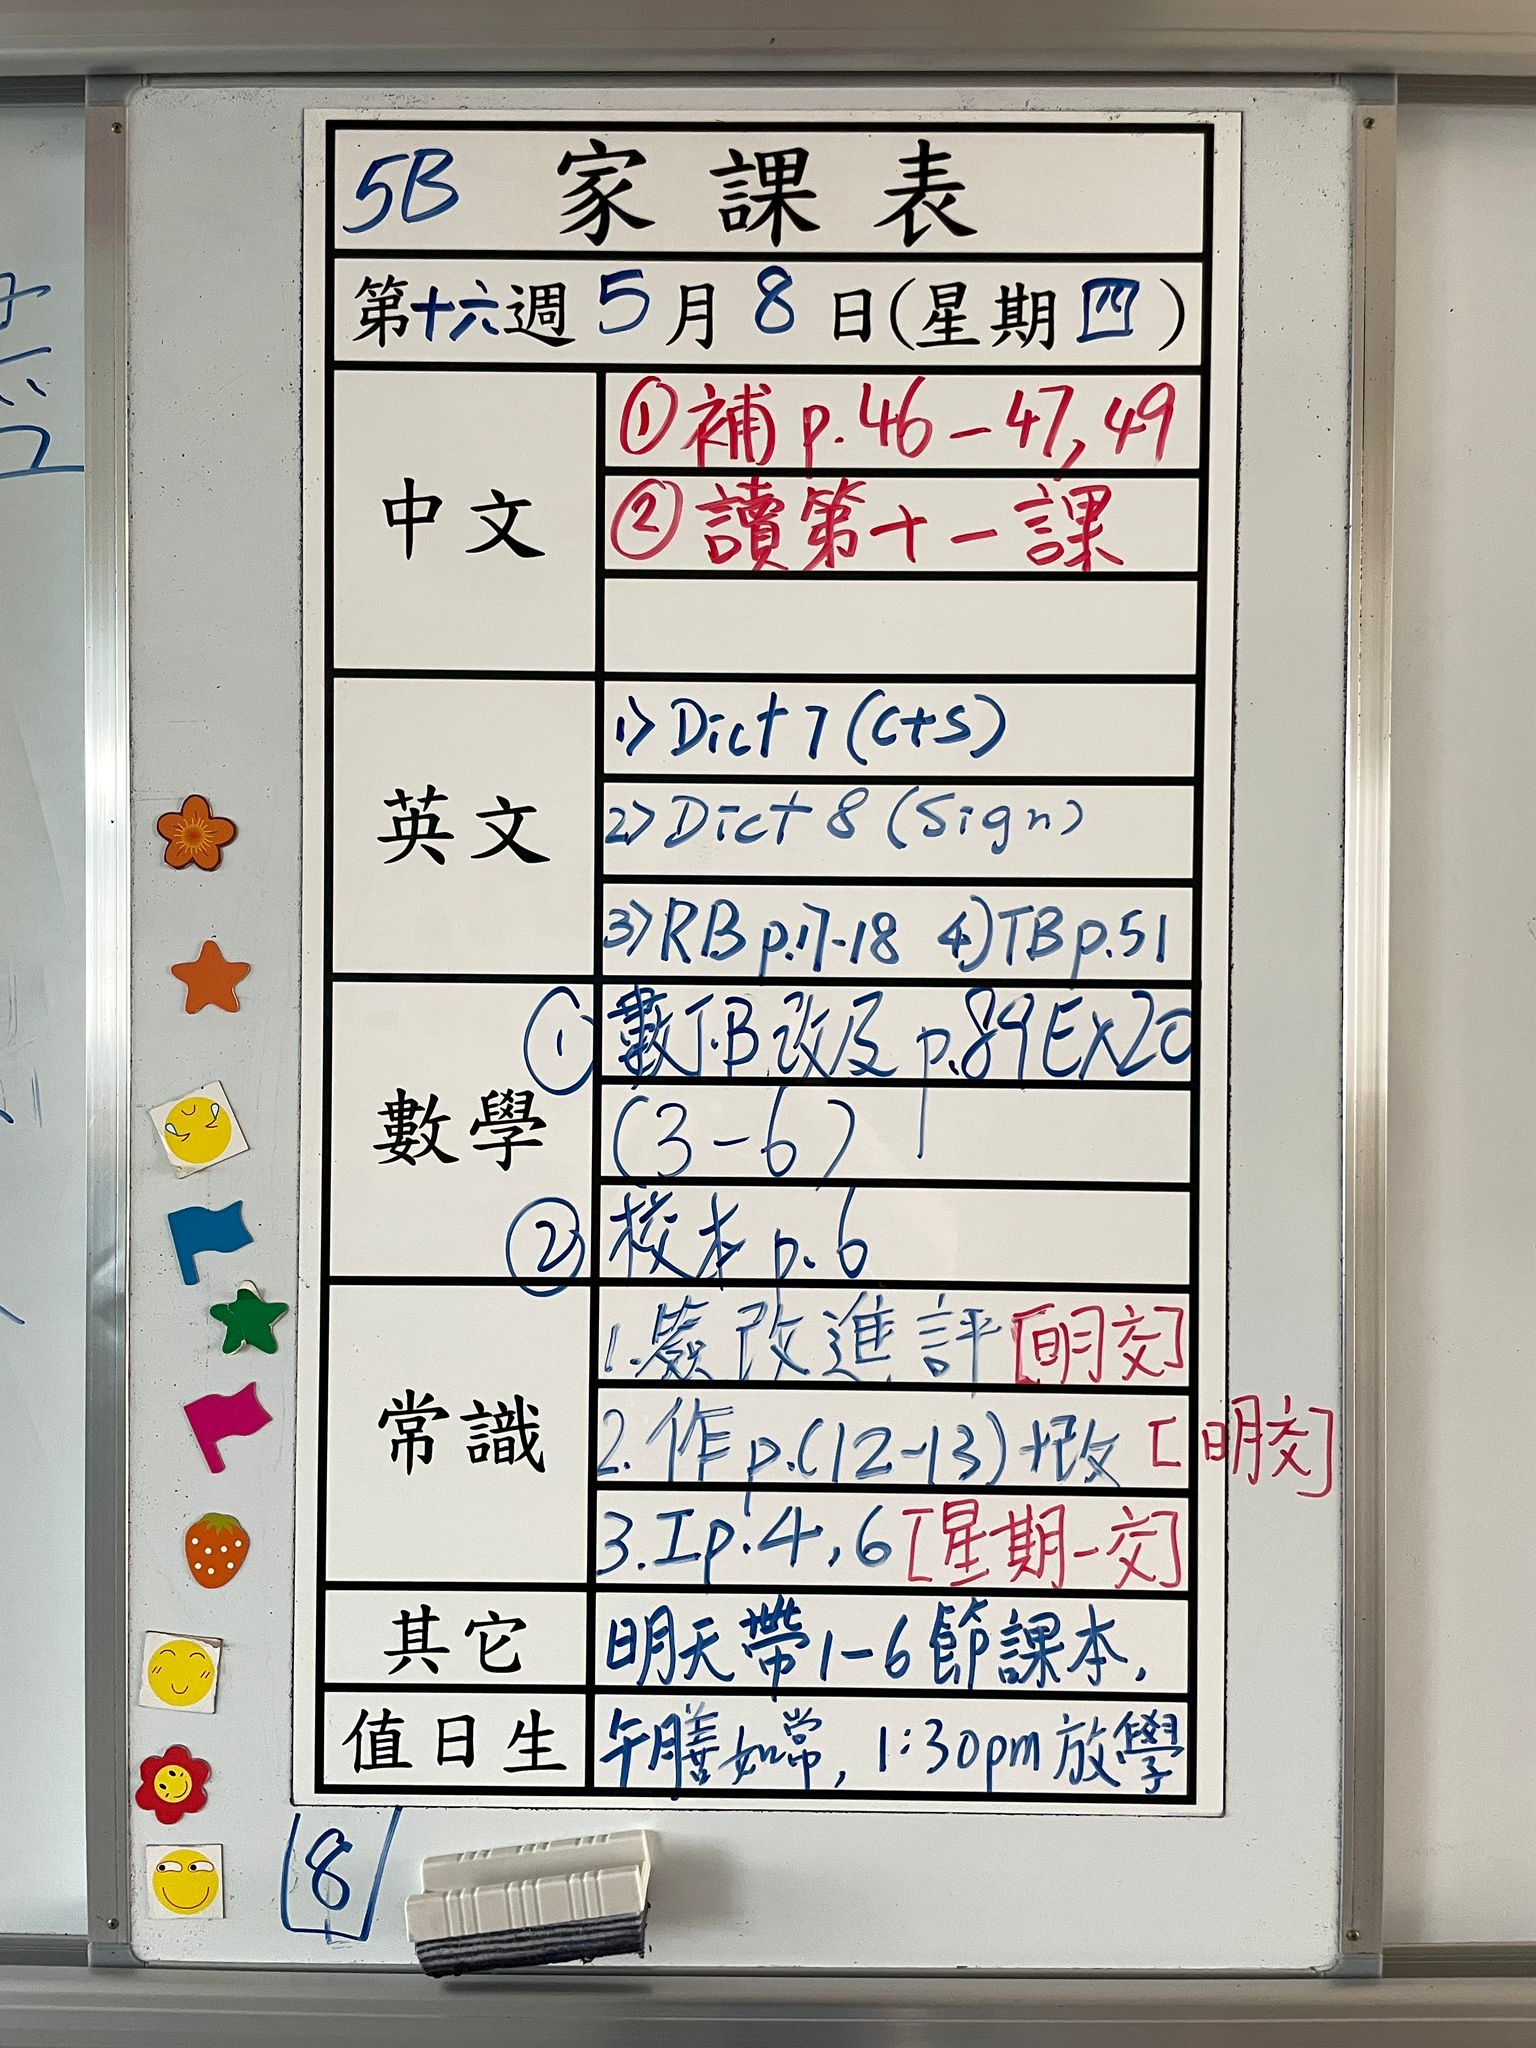 5B 家課表
第十六週 5月8日(星期四)
中文
①補 p.46-47,49
②讀第十一課
英文
1) Dict 7 (C+S)
2) Dict 8 (Sign)
3) RB p.17-18 4) TB p.51
數學
① 數T.B改及 p.89 Ex20
(3-6)
② 校本 p.6
常識
1. 簽改進評[明交]
2. 作p.(12-13)+改 [明交]
3. I p.4,6[星期一交]
其它
明天帶1-6節課本,
值日生
午膳如常, 1:30pm放學
8